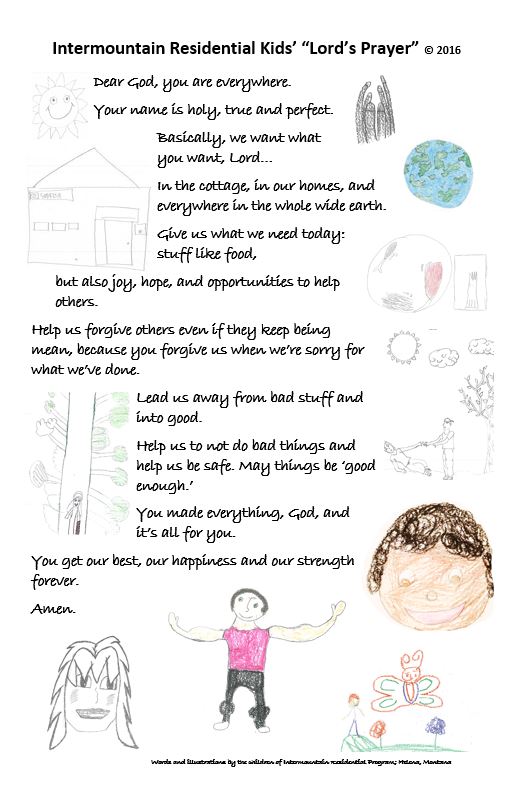 Intermountain Residential Kids' "Lord's Prayer" © 2016
Dear God, you are everywhere.
Your name is holy, true and perfect.
Basically, we want what
you want, Lord...
In the cottage, in our homes, and
everywhere in the whole wide earth.
Give us what we need today:
stuff like food,
but also joy, hope, and opportunities to help
others.
Help us forgive others even if they keep being
mean, because you forgive us when we're sorry for
what we've done.
Lead us away from bad stuff and
into good.
Help us to not do bad things and
help us be safe. May things be 'good
enough.'
You made everything, God, and
it's all for you.
You get our best, our happiness and our strength
forever.
Amen.
Words and illustrations by the children of Intermountain Residential Program; Helena, Montana